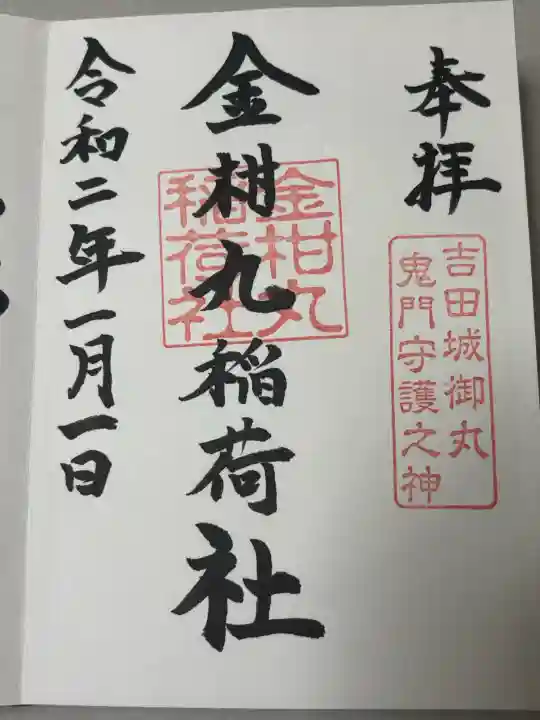 奉拝
吉田城御丸
鬼門守護之神
金柑丸稲荷社
金柑丸
稲荷社
令和二年一月一日